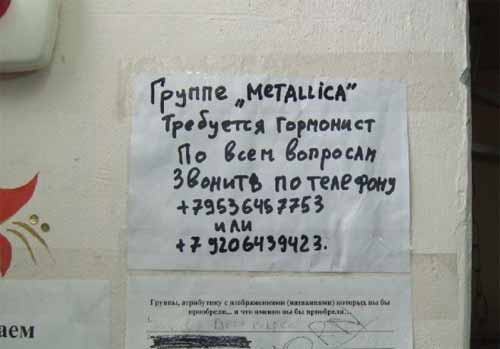 Группе „МеTALLiCA"
Требуется гормонист
По всем вопросам
Звонитв по телефону
+79536457753
или
+7 9206439423.
Группы, атрибутику с изображениями (названиями) которых вы бы
приобрели... и что именно вы бы приобрели:
аем